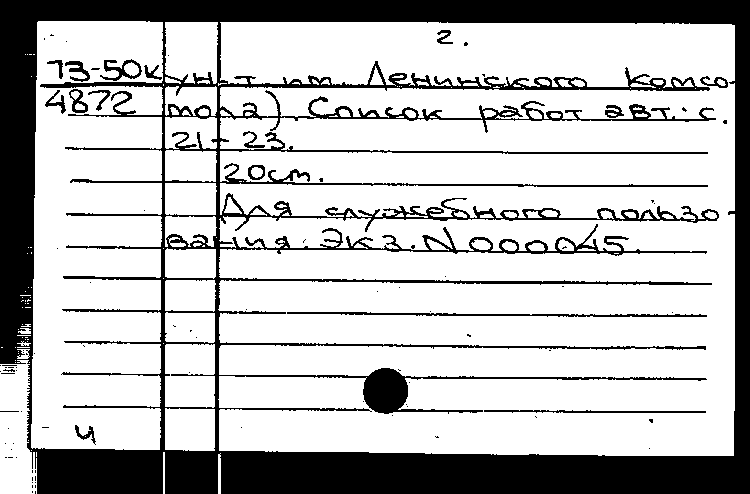 2.
73-50к ун-т им. Ленинского Комсо-
4872 мола). Список работ авт.: с.
21-23.
20см.
Для служебного пользо-
вания. Экз. N 000045.
ч